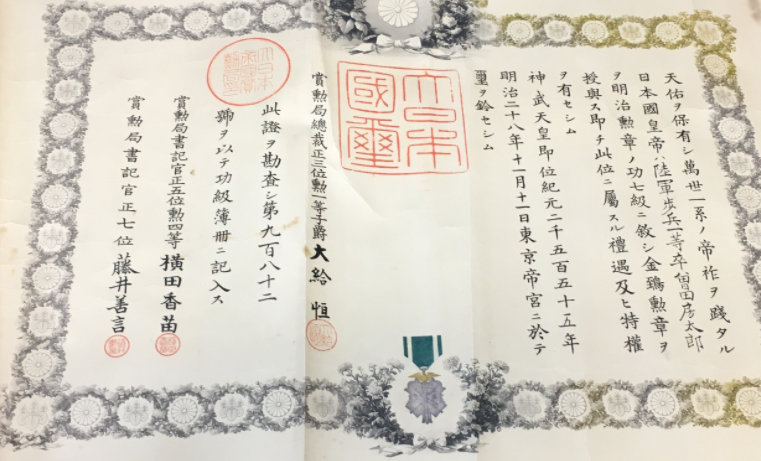 天佑ヲ保有シ萬世一系ノ帝祚ヲ踐タル
日本國皇帝ハ陸軍歩兵一等卒曾田房太郎
ヲ明治勲章ノ功七級ニ敘シ金鵄勲章ヲ
授與ス即チ此位ニ屬スル禮遇及ヒ特權
ヲ有セシム
神武天皇即位紀元二千五百五十五年
明治二十八年十一月十一日東京帝宮ニ於テ
璽ヲ鈐セシム
大日本
國璽
賞勲局總裁正三位勲一等子爵大給恒
此證ヲ勘査シ第九百八十二
號ヲ以テ功級簿冊ニ記入ス
賞勲局書記官正五位勲四等横田香苗
賞勲局書記官正七位藤井善言